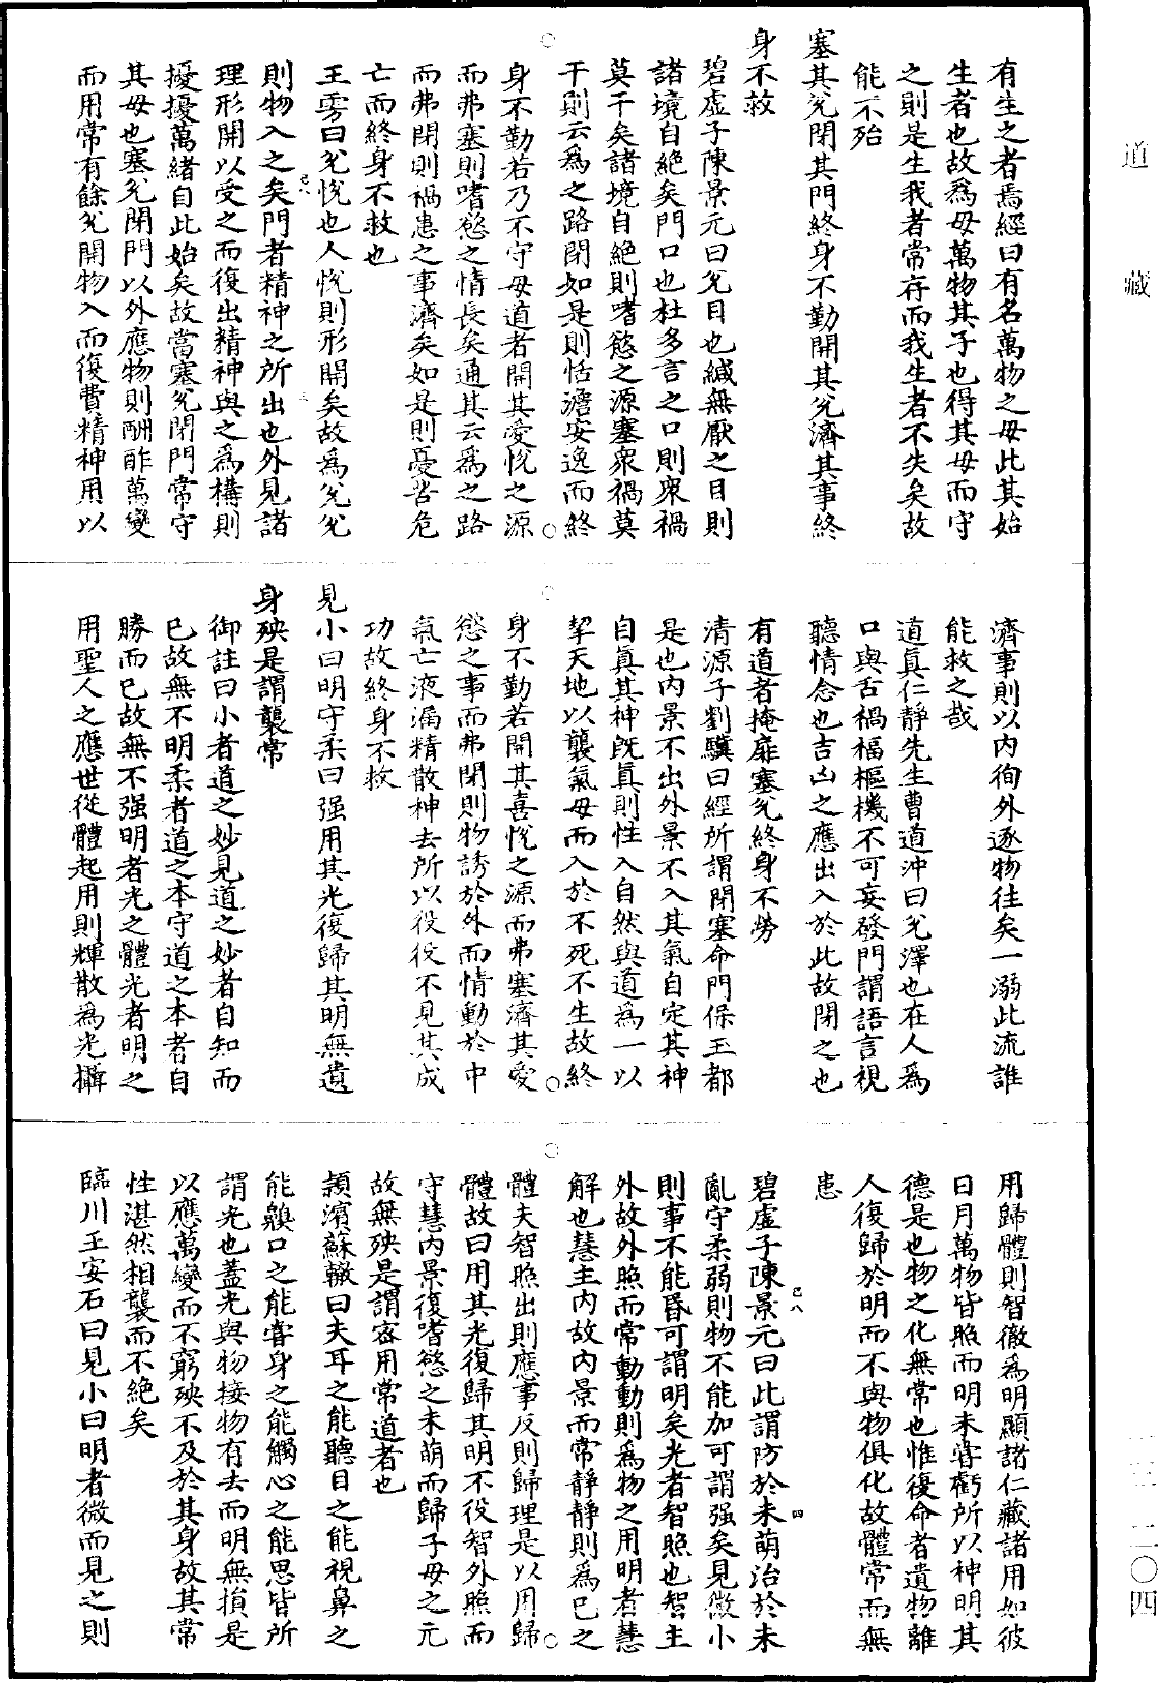 道藏
有生之者焉經曰有名萬物之母此其始
生者也故爲母萬物其子也得其母而守
之則是生我者常存而我生者不失矣故
能不殆
塞其兊閉其門終身不勤開其兊濟其事終
身不救
碧虛子陳景元曰兊目也緘無厭之目則
諸境自絕矣門口也杜多言之口則衆禍
莫干矣諸境自絕則嗜慾之源塞衆禍莫
干則云爲之路閉如是則恬澹安逸而終
身不勤若乃不守母道者開其愛悅之源
而弗塞則嗜慾之情長矣通其云爲之路
而弗閉則禍患之事濟矣如是則憂苦危
亡而終身不救也
王雱曰兊悅也人悅則形開矣故爲兊兊
則物入之矣門者精神之所出也外見諸
理形開以受之而復出精神與之爲構則
擾擾萬緒自此始矣故當塞兊閉門常守
其母也塞兊閉門以外應物則酬酢萬變
而用常有餘兊開物入而復費精神用以
濟事則以內徇外逐物往矣一溺此流誰
能救之哉
道真仁靜先生曹道沖曰兊澤也在人爲
口與舌禍福樞機不可妄發門謂語言視
聽情念也吉凶之應出入於此故閉之也
有道者掩扉塞兊終身不勞
清源子劉驥曰經所謂閉塞命門保玉都
是也內景不出外景不入其氣自定其神
自真其神既真則性入自然與道爲一以
挈天地以襲氣母而入於不死不生故終
身不勤若開其喜悅之源而弗塞濟其愛
慾之事而弗閉則物誘於外而情動於中
氣亡液漏精散神去所以役役不見其成
功故終身不救
見小曰明守柔曰强用其光復歸其明無遺
身殃是謂襲常
御註曰小者道之妙見道之妙者自知而
已故無不明柔者道之本守道之本者自
勝而已故無不强明者光之體光者明之
用聖人之應世從體起用則輝散爲光攝
用歸體則智徹爲明顯諸仁藏諸用如彼
日月萬物皆照而明未甞虧所以神明其
德是也物之化無常也惟復命者遺物離
人復歸於明而不與物俱化故體常而無
患
碧虛子陳景元曰此謂防於未萌治於未
亂守柔弱則物不能加可謂强矣見微小
則事不能昏可謂明矣光者智照也智主
外故外照而常動動則爲物之用明者慧
解也慧主內故內景而常靜靜則爲己之
體夫智照出則應事反則歸理是以用歸
體故曰用其光復歸其明不役智外照而
守慧內景復嗜慾之未萌而歸子母之元
故無殃是謂密用常道者也
潁濱蘇轍曰夫耳之能聽目之能視鼻之
能齅口之能甞身之能觸心之能思皆所
謂光也蓋光與物接物有去而明無損是
以應萬變而不窮殃不及於其身故其常
性湛然相襲而不絕矣
臨川王安石曰見小曰明者微而見之則